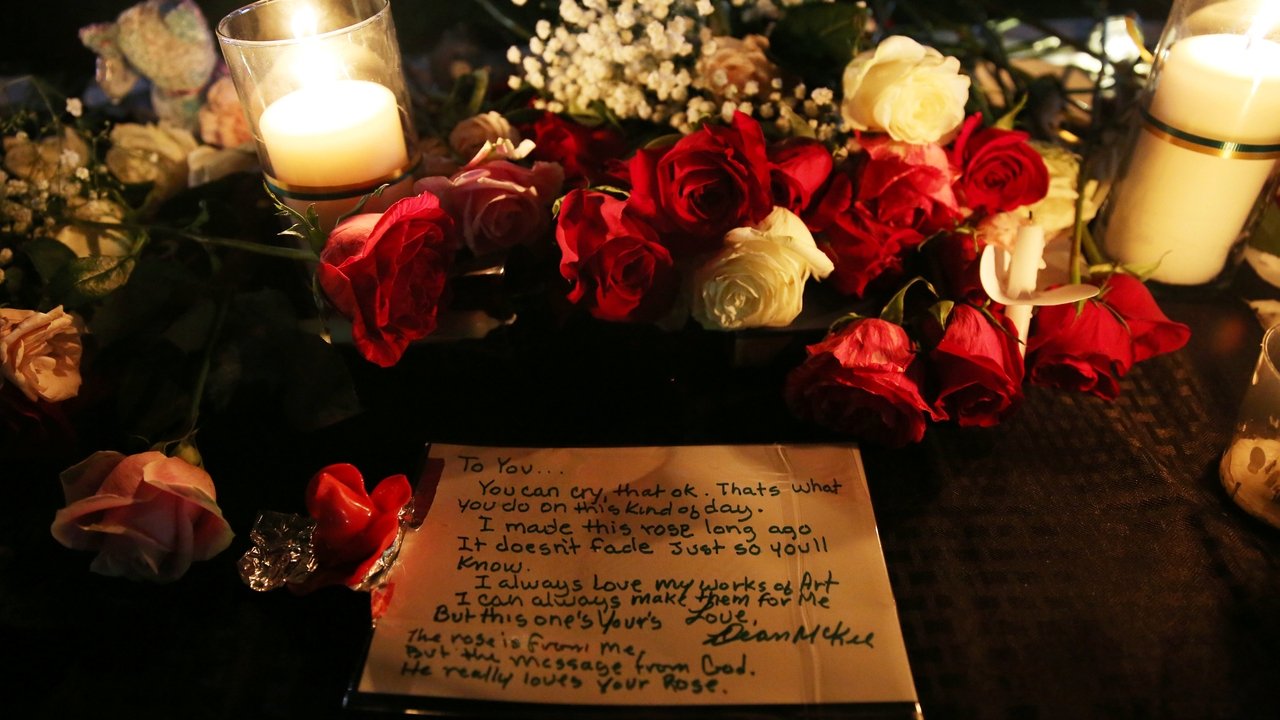 To You...
You can cry, that ok. Thats what
you do on this kind of day.
I made this rose long ago
It doesn't fade just so you'll
know.
I always Love my works of Art
I can always make them for Me
But this one's your's Love,
Dean McKee
The rose is from me,
But the message from God.
He really loves your Rose.